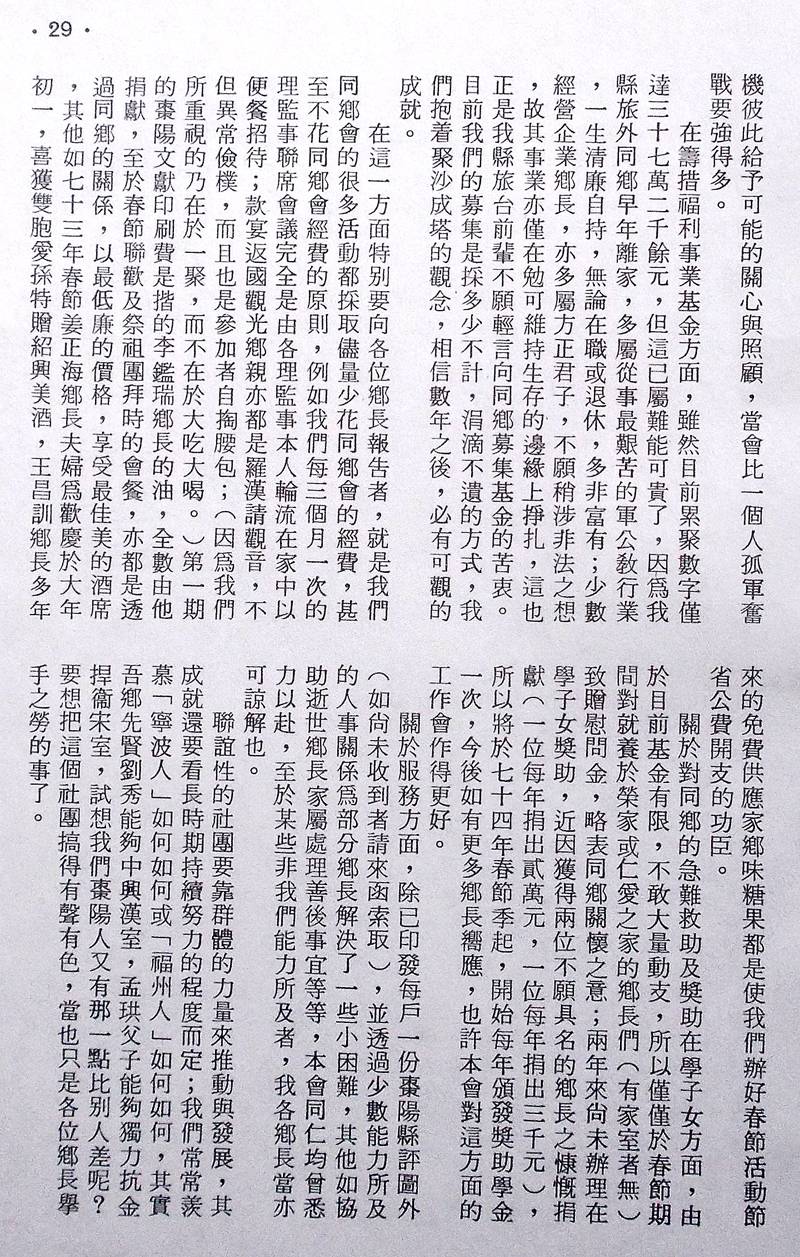 • 29 •
機彼此給予可能的關心與照顧，當會比一個人孤軍奮
戰要強得多。
在籌措福利事業基金方面，雖然目前累聚數字僅
達三十七萬二千餘元，但這已屬難能可貴了，因爲我
縣旅外同鄉早年離家，多屬從事最艱苦的軍公教行業
，一生清廉自持，無論在職或退休，多非富有；少數
經營企業鄉長，亦多屬方正君子，不願稍涉非法之想
，故其事業亦僅在勉可維持生存的邊緣上掙扎，這也
正是我縣旅台前輩不願輕言向同鄉募集基金的苦衷。
目前我們的募集是採多少不計，涓滴不遺的方式，我
們抱着聚沙成塔的觀念，相信數年之後，必有可觀的
成就。
在這一方面特別要向各位鄉長報告者，就是我們
同鄉會的很多活動都採取儘量少花同鄉會的經費，甚
至不花同鄉會經費的原則，例如我們每三個月一次的
理監事聯席會議完全是由各理監事本人輪流在家中以
便餐招待；款宴返國觀光鄉親亦都是羅漢請觀音，不
但異常儉樸，而且也是參加者自掏腰包；（因爲我們
所重視的乃在於一聚，而不在於大吃大喝。）第一期
的棗陽文獻印刷費是揩的李鑑瑞鄉長的油，全數由他
捐獻，至於春節聯歡及祭祖團拜時的會餐，亦都是透
過同鄉的關係，以最低廉的價格，享受最佳美的酒席
，其他如七十三年春節姜正海鄉長夫婦爲歡慶於大年
初一，喜獲雙胞愛孫特贈紹興美酒，王昌訓鄉長多年
來的免費供應家鄉味糖果都是使我們辦好春節活動節
省公費開支的功臣。
關於對同鄉的急難救助及獎助在學子女方面，由
於目前基金有限，不敢大量動支，所以僅僅於春節期
間對就養於榮家或仁愛之家的鄉長們（有家室者無）
致贈慰問金，略表同鄉關懷之意；兩年來尚未辦理在
學子女獎助，近因獲得兩位不願具名的鄉長之慷慨捐
獻（一位每年捐出貳萬元，一位每年捐出三千元），
所以將於七十四年春節季起，開始每年頒發獎助學金
一次，今後如有更多鄉長嚮應，也許本會對這方面的
工作會作得更好。
關於服務方面，除已印發每戶一份棗陽縣評圖外
（如尚未收到者請來函索取），並透過少數能力所及
的人事關係爲部分鄉長解決了一些小困難，其他如協
助逝世鄉長家屬處理善後事宜等等，本會同仁均曾悉
力以赴，至於某些非我們能力所及者，我各鄉長當亦
可諒解也。
聯誼性的社團要靠群體的力量來推動與發展，其
成就還要看長時期持續努力的程度而定；我們常常羨
慕「寧波人」如何如何或「福州人」如何如何，其實
吾鄉先賢劉秀能夠中興漢室，孟珙父子能夠獨力抗金
捍衞宋室，試想我們棗陽人又有那一點比別人差呢？
要想把這個社團搞得有聲有色，當也只是各位鄉長擧
手之勞的事了。